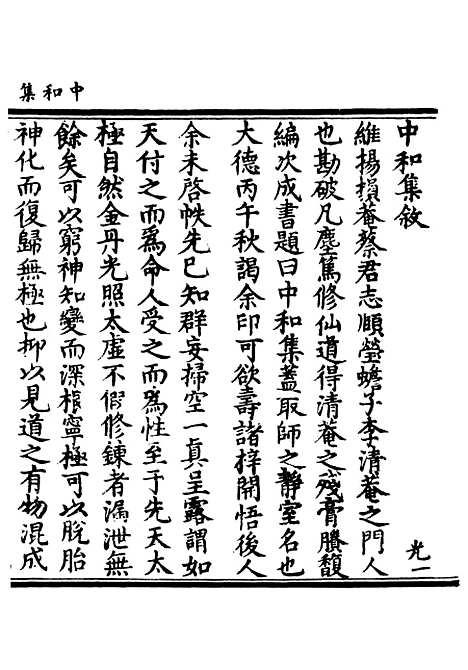 中和集
中和集敘
光一
維揚損菴蔡君志頤瑩蟾子李清菴之門人
也勘破凡塵篤修仙道得清菴之殘膏賸馥
編次成書題曰中和集蓋取師之靜室名也
大德丙午秋謁余印可欲壽諸梓開悟後人
余未啓帙先已知群妄掃空一眞呈露謂如
天付之而爲命人受之而爲性至于先天太
極自然金丹光照太虛不假修鍊者漏泄無
餘矣可以窮神知變而深根寧極可以脫胎
神化而復歸無極也抑以見道之有物混成